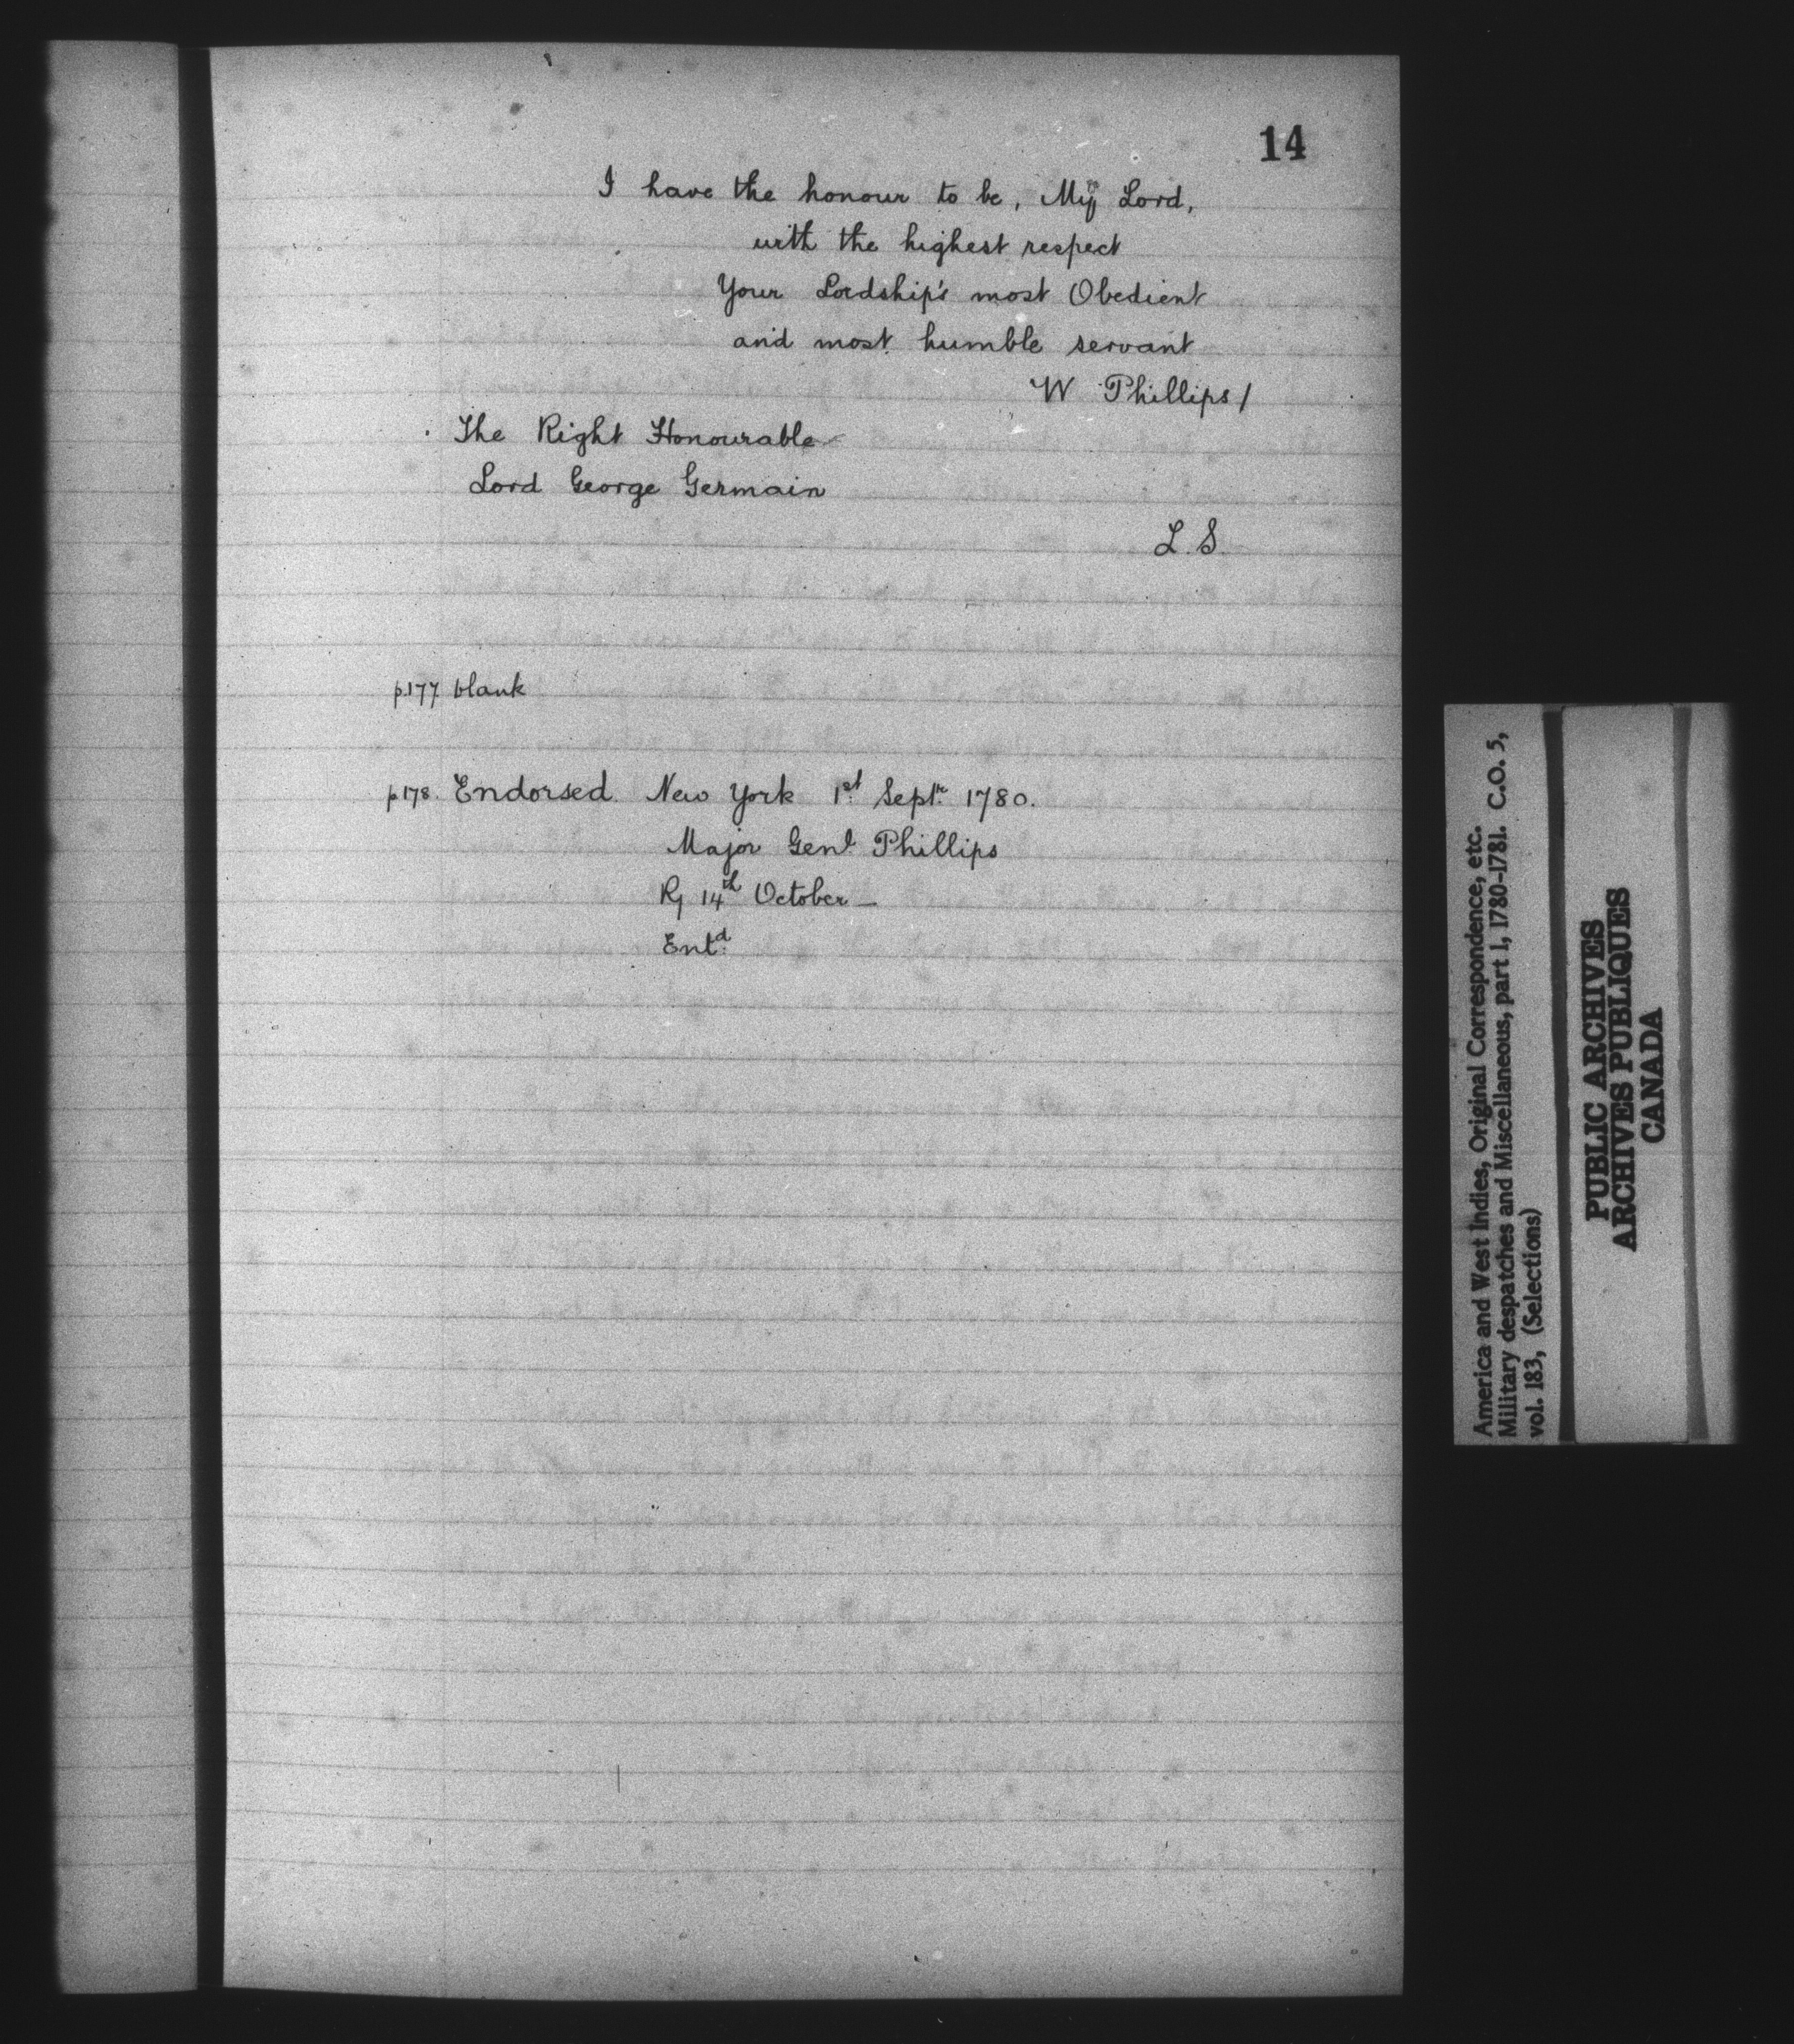 14
I have the honour to be, My Lord,
with the highest respect
Your Lordship's most Obedient
and most humble servant
W Phillips/
The Right Honourable
Lord George Germain
L. S.
p.177 blank
p.178. Endorsed. New York 1st Septr. 1780.
Major Genl. Phillips
R/ 14th October —
Entd.
America and West Indies, Original Correspondence, etc.
Military despatches and Miscellaneous, part 1, 1780-1781. C.O. 5,
vol. 183, (Selections)
PUBLIC ARCHIVES
ARCHIVES PUBLIQUES
CANADA